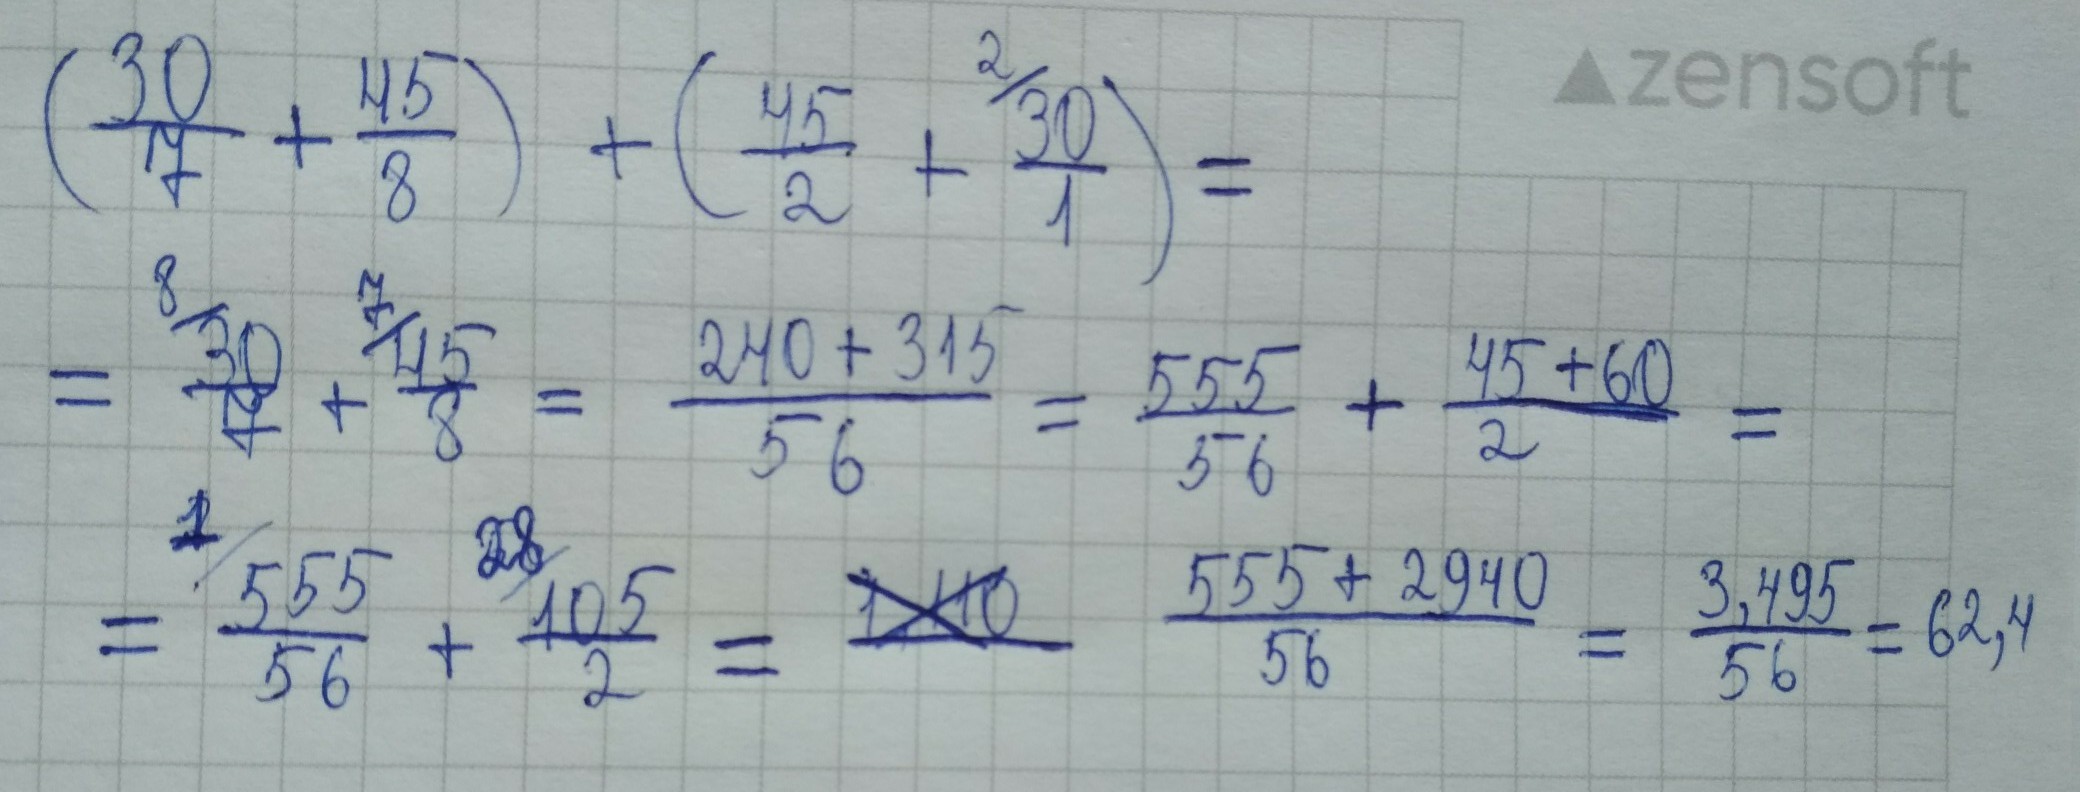 zensoft
(30/7 + 45/8) + (45/2 + 2/ 30/1) =
= 8/ 30/7 + 7/ 45/8 = (240 + 315)/56 = 555/56 + (45 + 60)/2 =
= 1/ 555/56 + 28/ 105/2 = (555 + 2940)/56 = 3,495/56 = 62,4